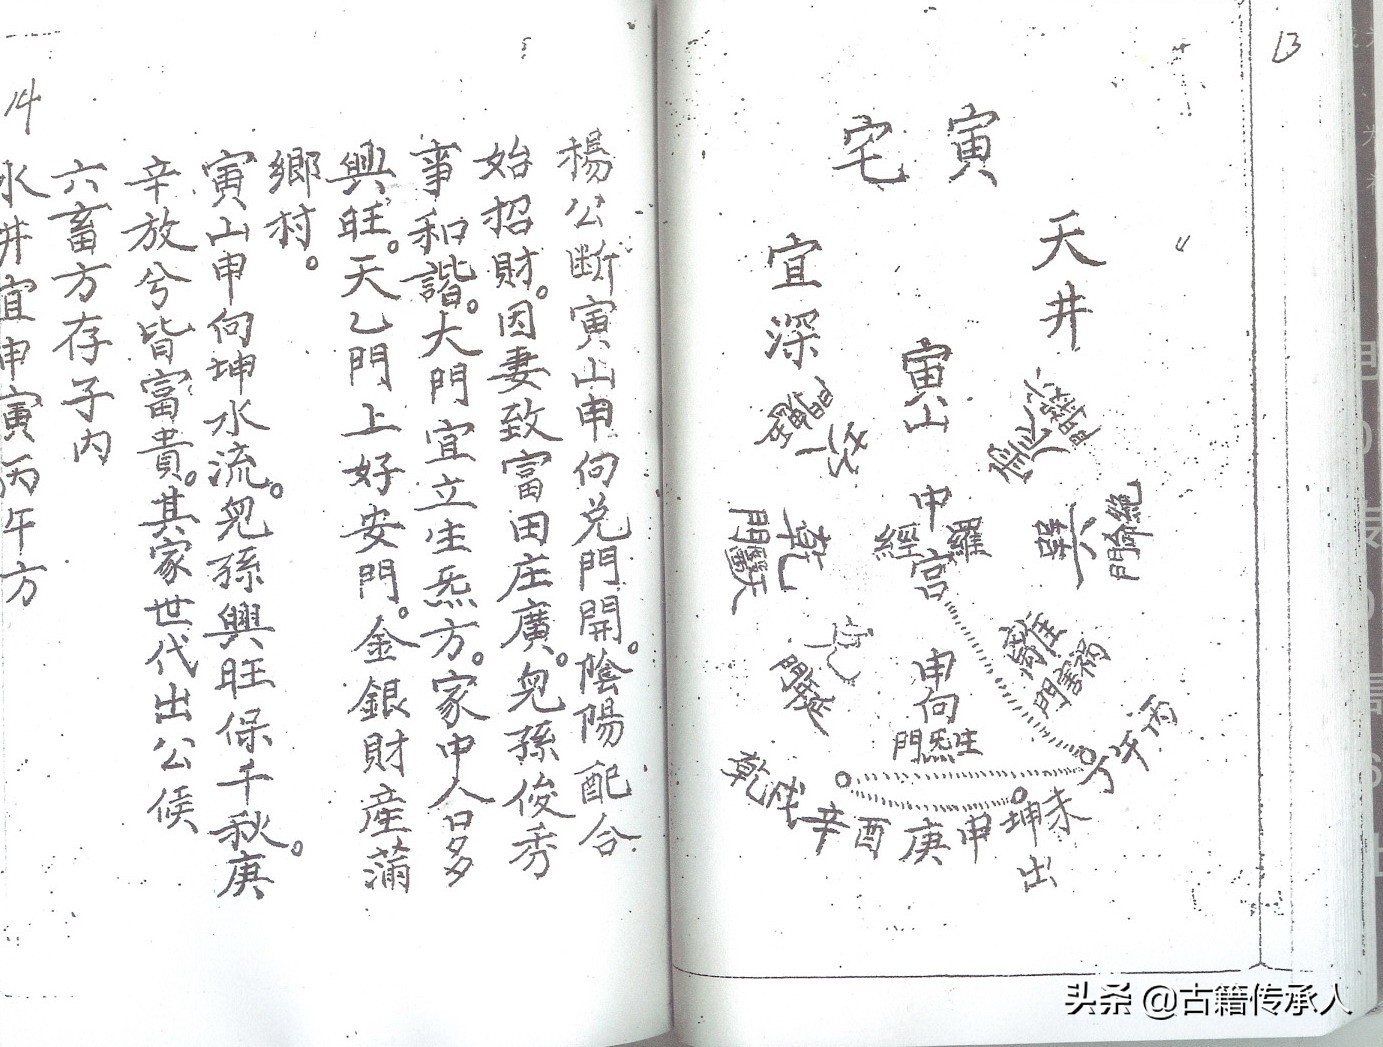 13
寅宅
天井
宜深
寅山
中宮
羅
經
巽
絕命門
乾
天醫門
禍害門
申向
生炁門
丙
午
丁
未
坤
出
申
庚
酉
辛
戌
乾
楊公斷寅山申向兑門開。陰陽配合
始招財。因妻致富田庄廣。兒孫俊秀
事和諧。大門宜立生炁方。家中人口多
興旺。天乙門上好安門。金銀財產蒲
鄉村。
寅山申向坤水流。兒孫興旺保千秋。庚
辛放兮皆富貴。其家世代出公候
六畜方存子内
水井宜申寅丙午方
14
头条 @古籍传承人